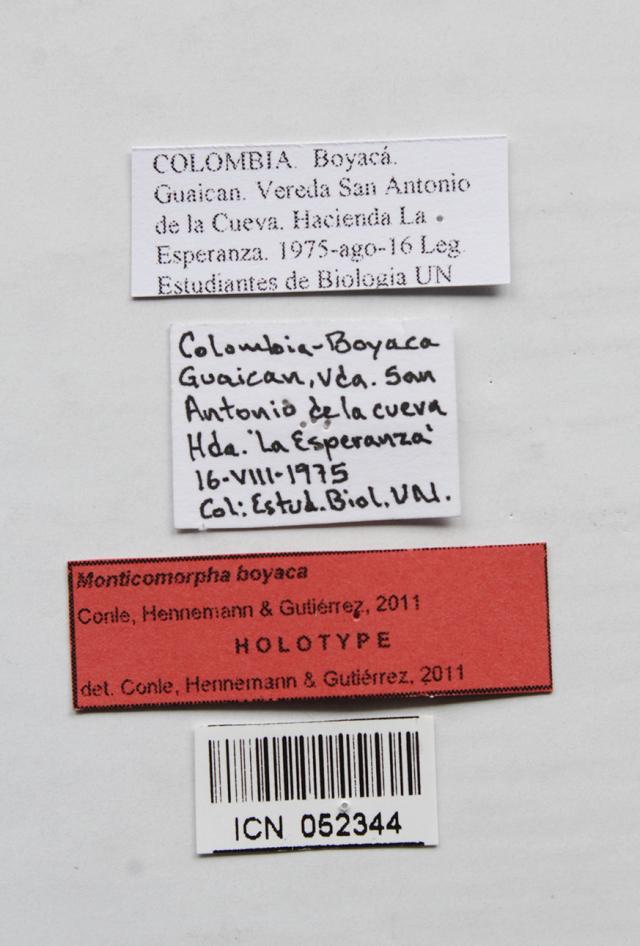 COLOMBIA. Boyacá.
Guaican. Vereda San Antonio
de la Cueva. Hacienda La
Esperanza. 1975-ago-16 Leg.
Estudiantes de Biologia UN
Colombia-Boyaca
Guaican, Vda. San
Antonio de la cueva
Hda. "La Esperanza"
16-VIII-1975
Col: Estud. Biol. UN.
Monticomorpha boyaca
Conle, Hennemann & Gutiérrez, 2011
HOLOTYPE
det. Conle, Hennemann & Gutiérrez, 2011
ICN 052344